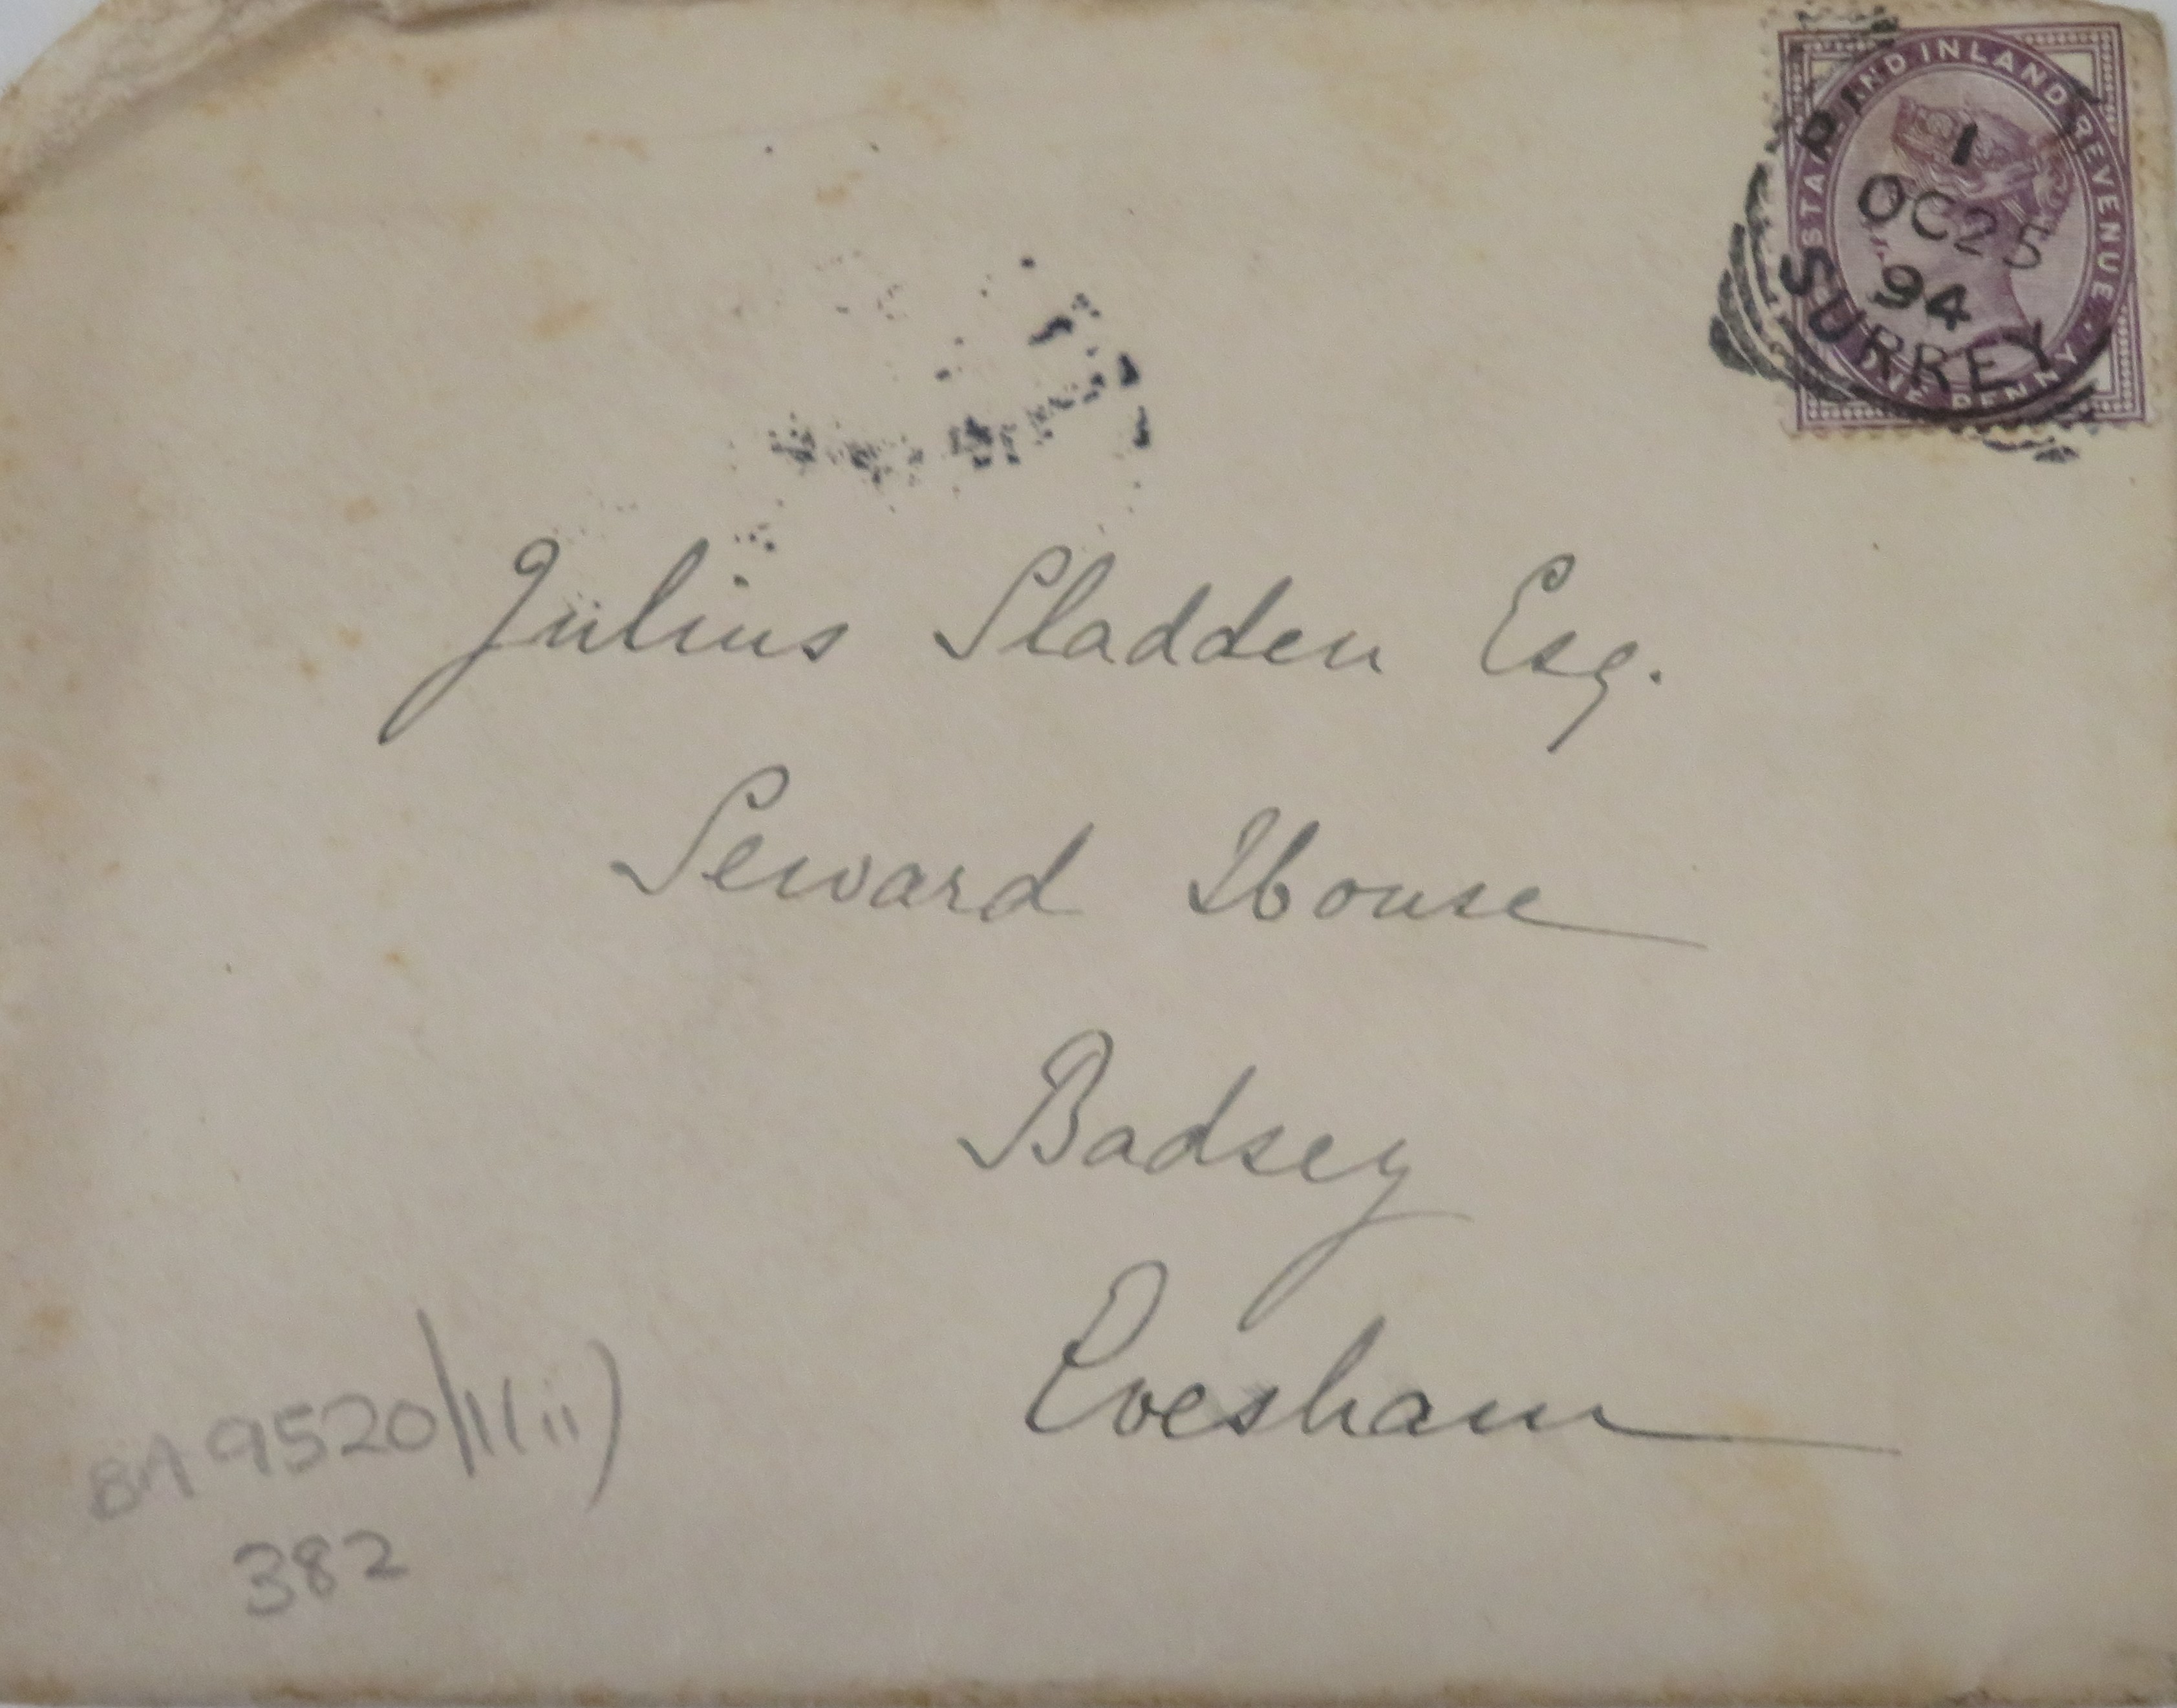 STAMP AND INLAND REVENUE.
ONE PENNY
1
OC 25
94
SURREY
Julius Sladden Esq.
Seward House
Badsey
Evesham
BA 9520/11(ii)
382